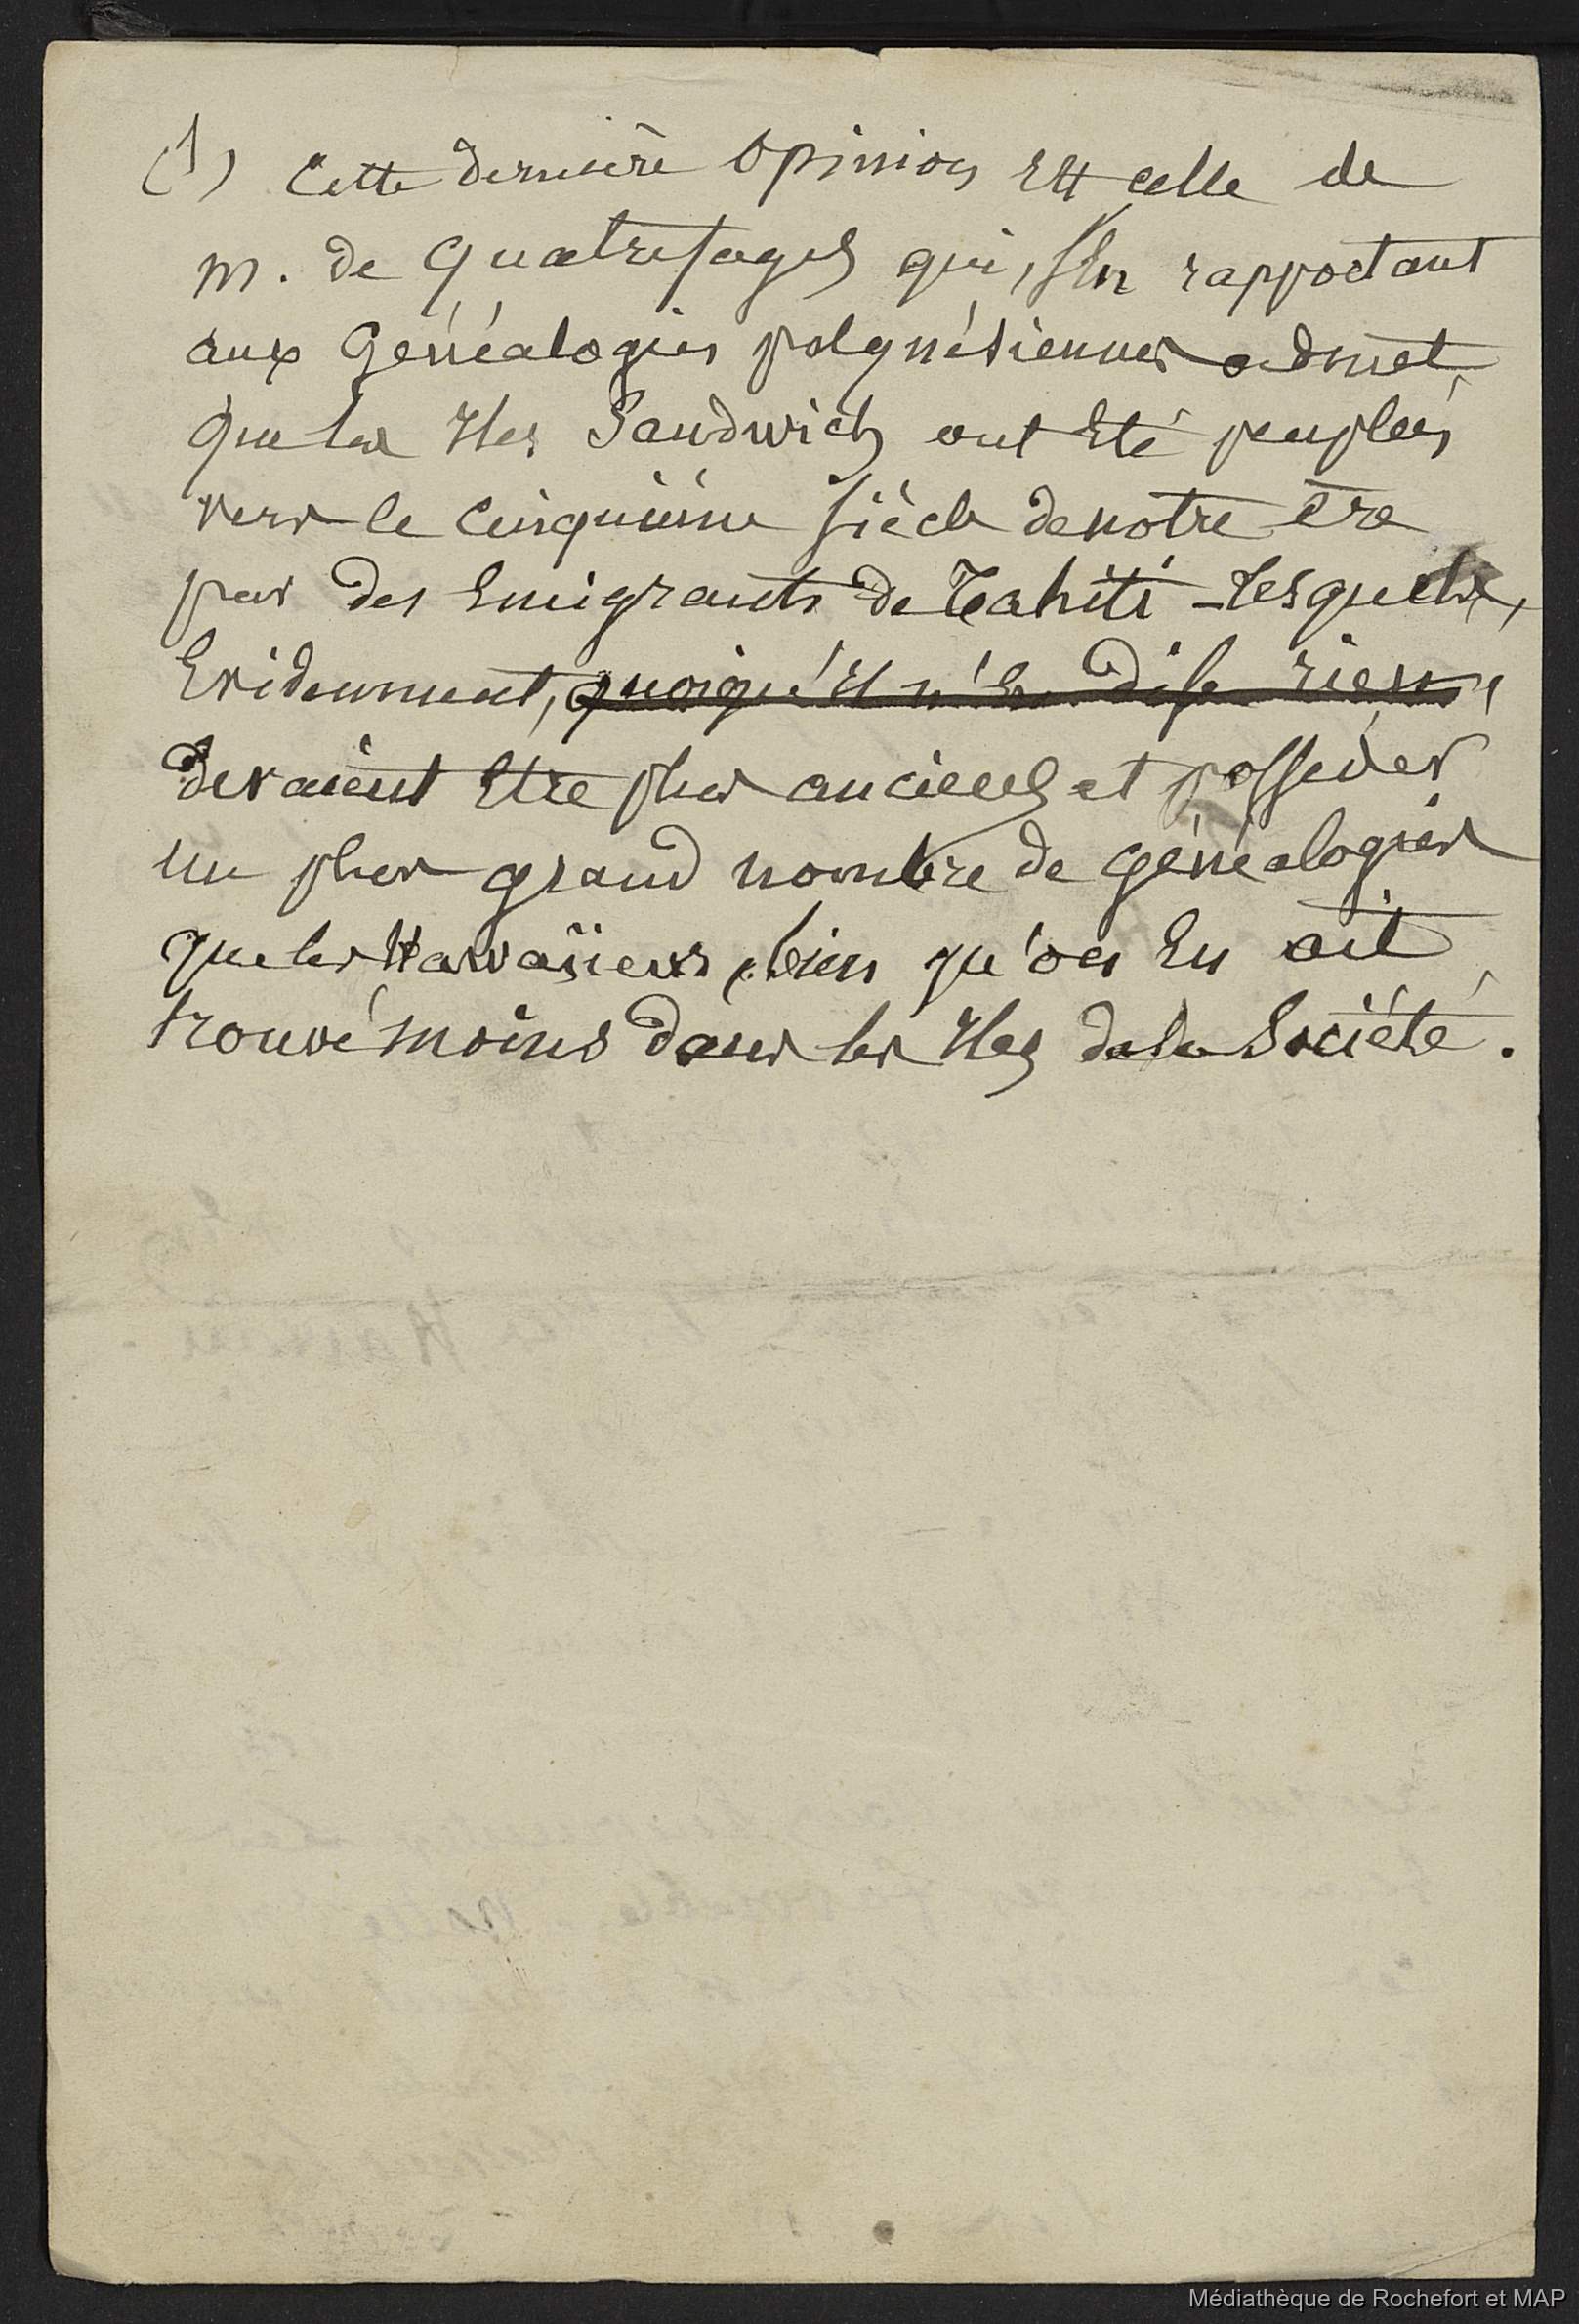 (1) Cette dernière opinion est celle de
M. de Quatrefages qui, s'en rapportant
aux Généalogies polynésiennes admet,
que les Iles Sandwich ont été peuplées
vers le cinquième siècle de notre ère
par des Emigrants de Tahiti - lesquels,
Evidemment, quoiqu'il n'en dise rien,
devaient être plus anciens et posséder
un plus grand nombre de généalogies
que les Hawaiiens, bien qu'on en ait
trouvé moins dans les Iles de la Société.
Médiathèque de Rochefort et MAP